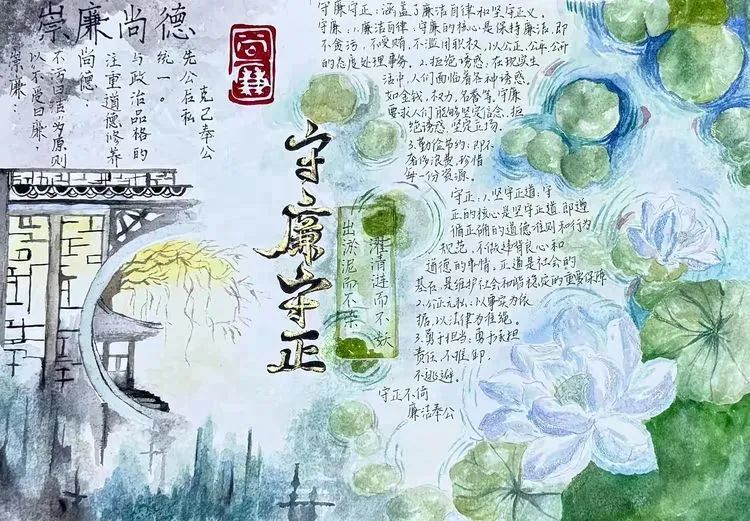 崇廉尚德
崇廉：
以“不受曰廉，
不污曰洁”为原则
尚德：
注重道德修养
与政治品格的
统一。
先公后私
克己奉公
守廉守正
出淤泥而不染
濯清涟而不妖
守廉守正：涵盖了廉洁自律和坚守正义。
守廉：1.廉洁自律：守廉的核心是保持廉洁，即
不贪污，不受贿，不滥用职权，以公正、公平、公开
的态度处理事务。2.拒绝诱惑：在现实生
活中，人们面临着各种诱惑。
如金钱、权力、名誉等。守廉
要求人们能够坚定信念，拒
绝诱惑，坚定立场。
3.勤俭节约：即不
奢侈浪费，珍惜
每一份资源。
守正：1.坚守正道：守
正的核心是坚守正道，即遵
循正确的道德准则和行为
规范，不做违背良心和
道德的事情。正道是社会的
基石，是维护社会和谐稳定的重要保障
2.公正无私：以事实为依
据，以法律为准绳。
3.勇于担当：勇于承担
责任，不推卸，
不逃避。
守正不倚
廉洁奉公